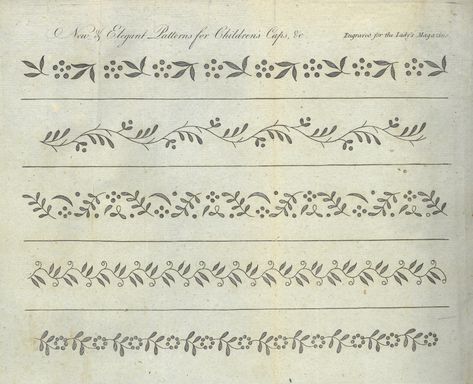 New & Elegant Patterns for Children's Caps, &c
Engraved for the Lady's Magazine